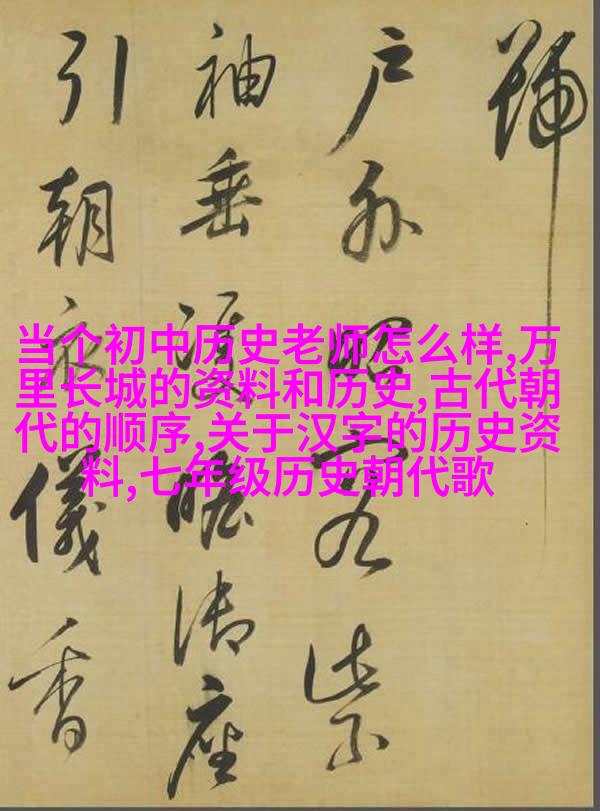 號
户外昭容紫
袖垂瞻御座
引朝儀香
当个初中历史老师怎么样,万
里长城的资料和历史,古代朝
代的顺序,关于汉字的历史资
料,七年级历史朝代歌